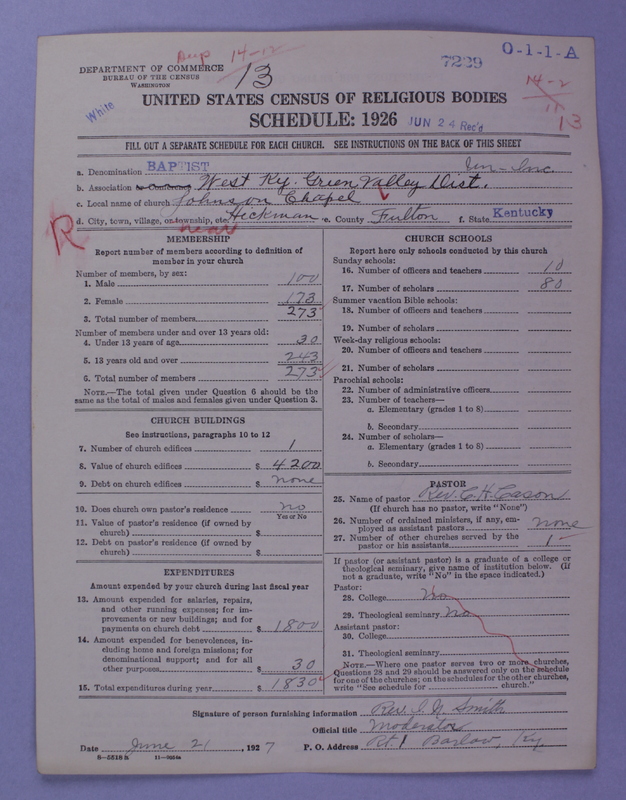 O-1-1-A
7229
14-12
DEPARTMENT OF COMMERCE
BUREAU OF THE CENSUS
WASHINGTON
13
14-2
11
13
White
UNITED STATES CENSUS OF RELIGIOUS BODIES
SCHEDULE: 1926
JUN 24 Rec'd
FILL OUT A SEPARATE SCHEDULE FOR EACH CHURCH. SEE INSTRUCTIONS ON THE BACK OF THIS SHEET
a. Denomination BAPTIST
b. Association or Conference West Ky. Green Valley Dist.
c. Local name of church Johnson Chapel
d. City, town, village, or township, etc. Heckman e. County Fulton f. State Kentucky
R near
MEMBERSHIP
Report number of members according to definition of
member in your church
Number of members, by sex:
1. Male 100
2. Female 173
3. Total number of members 273
Number of members under and over 13 years old:
4. Under 13 years of age 30
5. 13 years old and over 243
6. Total number of members 273
NOTE.—The total given under Question 6 should be the
same as the total of males and females given under Question 3.
CHURCH BUILDINGS
See instructions, paragraphs 10 to 12
7. Number of church edifices 1
8. Value of church edifices $ 4200
9. Debt on church edifices $ none
10. Does church own pastor's residence no
Yes or No
11. Value of pastor's residence (if owned by
church) $
12. Debt on pastor's residence (if owned by
church) $
EXPENDITURES
Amount expended by your church during last fiscal year
13. Amount expended for salaries, repairs,
and other running expenses; for im-
provements or new buildings; and for
payments on church debt $ 1800
14. Amount expended for benevolences, in-
cluding home and foreign missions; for
denominational support; and for all
other purposes $ 30
15. Total expenditures during year $ 1830
CHURCH SCHOOLS
Report here only schools conducted by this church
Sunday schools:
16. Number of officers and teachers 10
17. Number of scholars 80
Summer vacation Bible schools:
18. Number of officers and teachers
19. Number of scholars
Week-day religious schools:
20. Number of officers and teachers
21. Number of scholars
Parochial schools:
22. Number of administrative officers
23. Number of teachers—
a. Elementary (grades 1 to 8)
b. Secondary
24. Number of scholars—
a. Elementary (grades 1 to 8)
b. Secondary
PASTOR
25. Name of pastor Rev. C. H. Cason
(If church has no pastor, write "None")
26. Number of ordained ministers, if any, em-
ployed as assistant pastors none
27. Number of other churches served by the
pastor or his assistants 1
If pastor (or assistant pastor) is a graduate of a college or
theological seminary, give name of institution below. (If
not a graduate, write "No" in the space indicated.)
Pastor:
28. College No
29. Theological seminary No
Assistant pastor:
30. College
31. Theological seminary
NOTE.—Where one pastor serves two or more churches,
Questions 28 and 29 should be answered only on the schedule
for one of the churches; on the schedules for the other churches,
write "See schedule for church."
Signature of person furnishing information Rev. I. N. Smith
Official title Moderator
Date June 21, 1927 P. O. Address Rt. 1 Barlow, Ky
8-5518 b